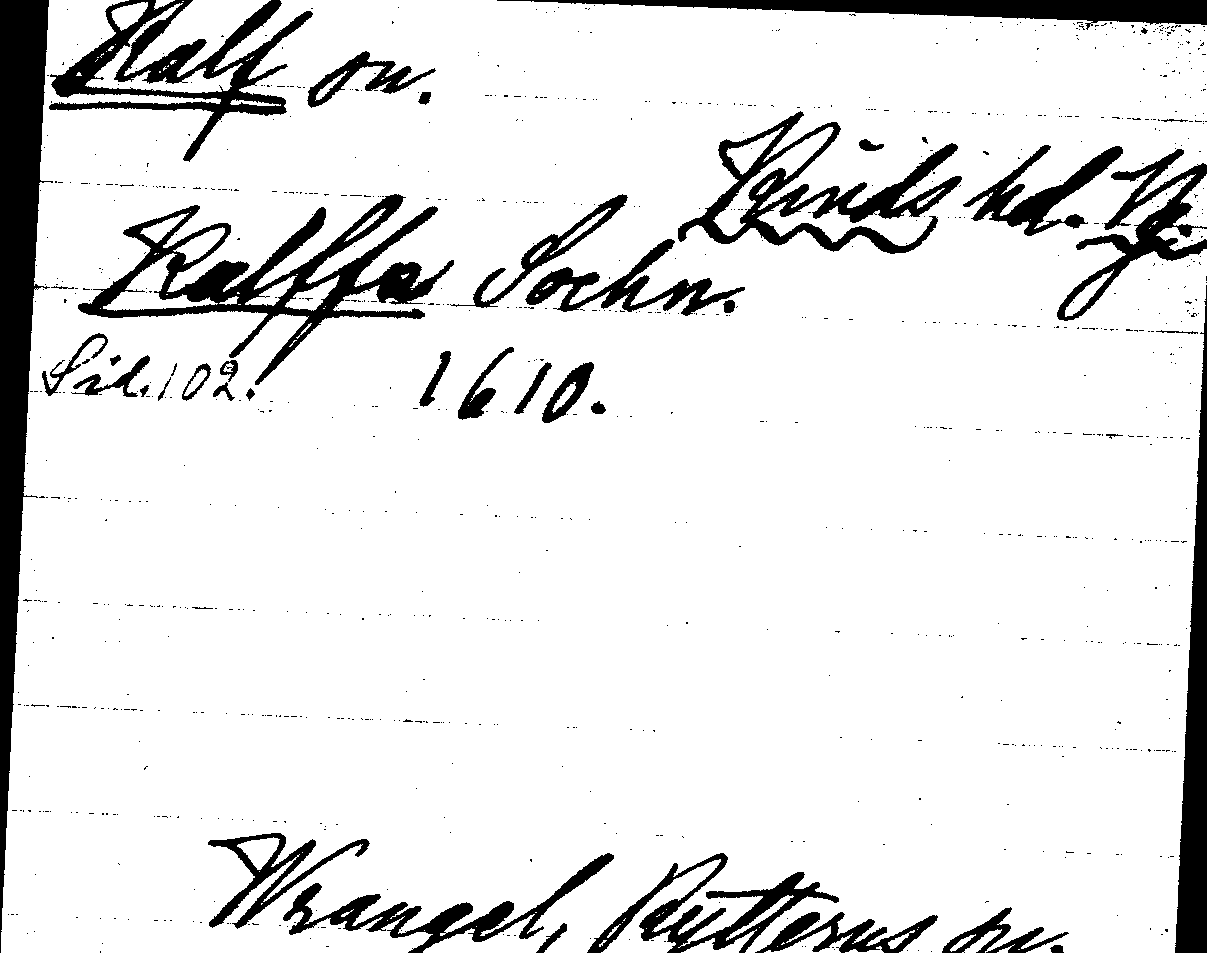 Kalf sn.
Kinds hd. Vg.
Kalffa Sochn.
Sid. 102. 1610.
Wrangel, Rytterus sn.